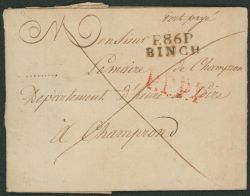 tout payé
P.86.P
BINCH
Monsieur
Le maire de Champrond
Département d'Eure
à Champrond